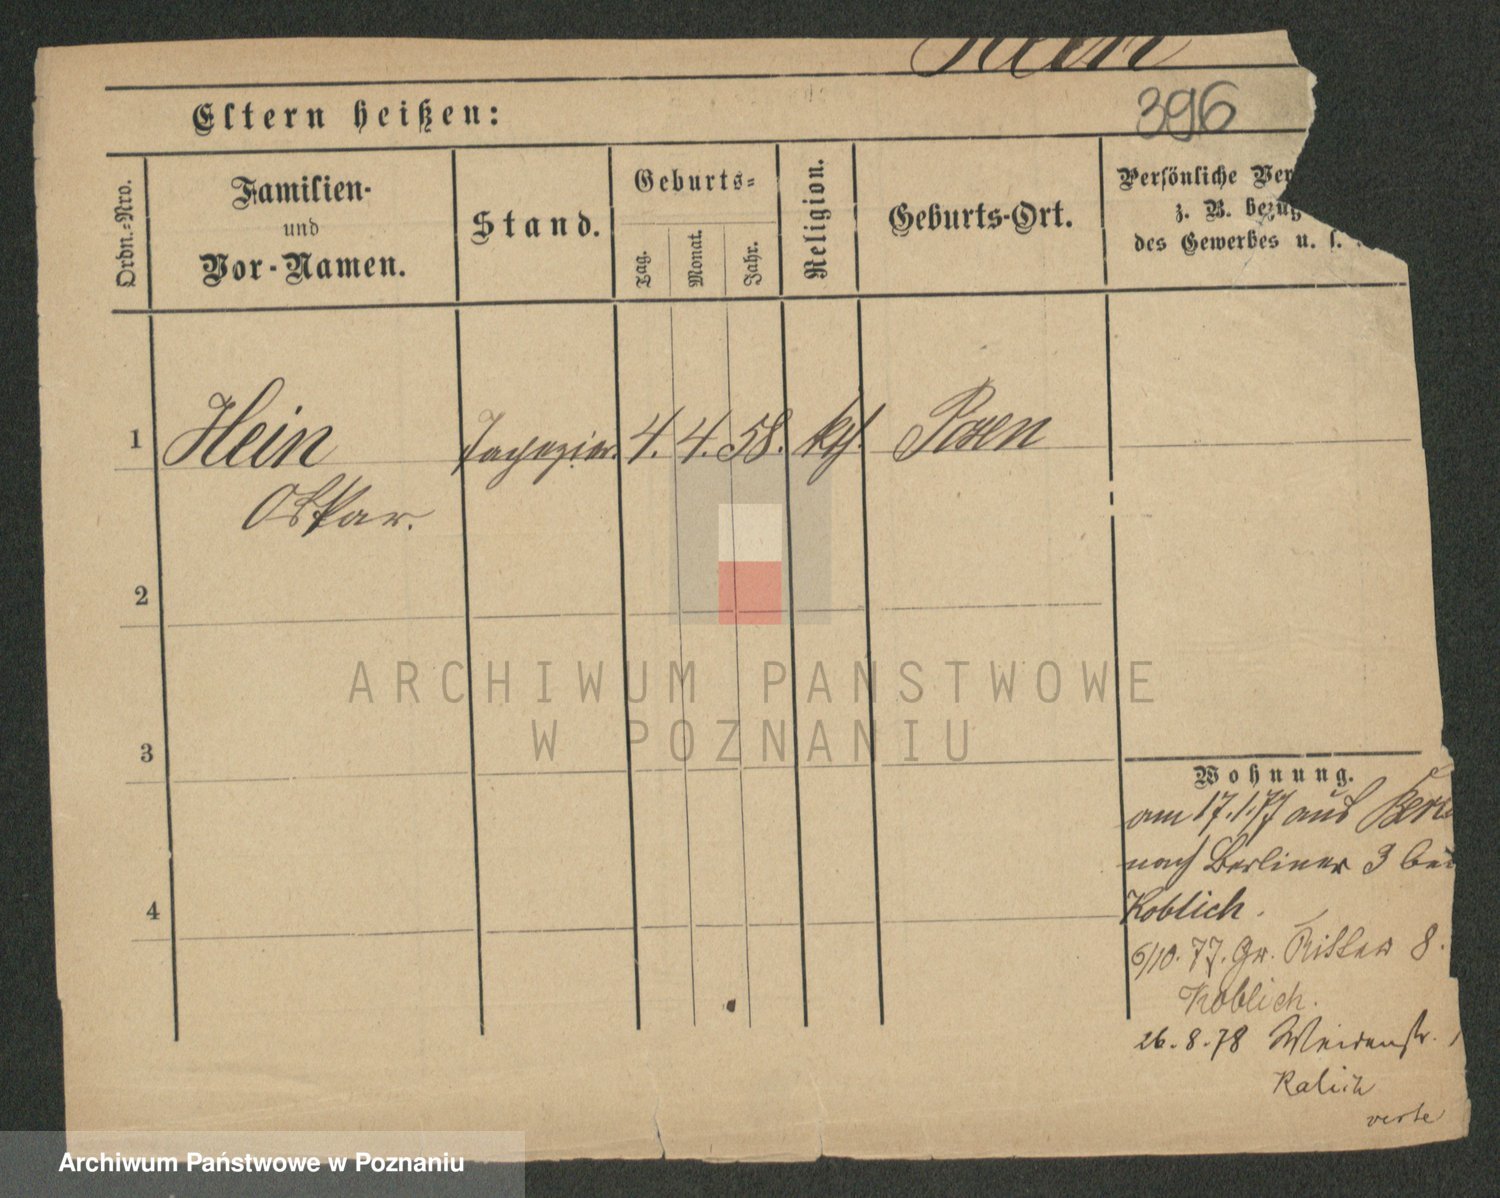 Hein
396
Eltern heißen:
Ordn.-Nro.
Familien-
und
Vor-Namen.
Stand.
Geburts-
Tag.
Monat.
Jahr.
Religion.
Geburts-Ort.
Persönliche Ver
z. B. bezüg
des Gewerbes u. s.
1 Hein Tapezier. 4. 4. 58. kth. Posen
Oskar.
2
3
4
Wohnung.
am 17.1.77 aus
nach Berliner 3 bei
Koblich.
6/10. 77. Gr. Ritter 8.
Koblich.
26.8.78 Weidenstr.
verte
ARCHIWUM PAŃSTWOWE
W POZNANIU
Archiwum Państwowe w Poznaniu